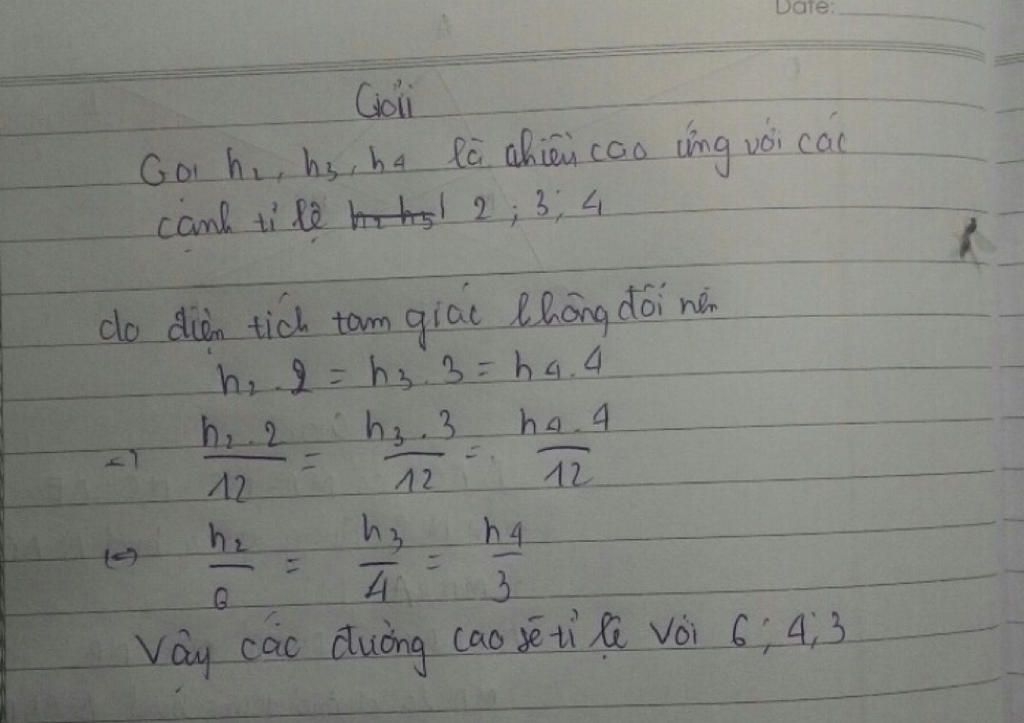 Date:
Giải
Gọi h₂, h₃, h₄ là chiều cao ứng với các
cạnh tỉ lệ 2; 3; 4
do diện tích tam giác không đổi nên
h₂.2 = h₃.3 = h₄.4
<=> h₂.2/12 = h₃.3/12 = h₄.4/12
<=> h₂/6 = h₃/4 = h₄/3
Vậy các đường cao sẽ tỉ lệ với 6; 4; 3